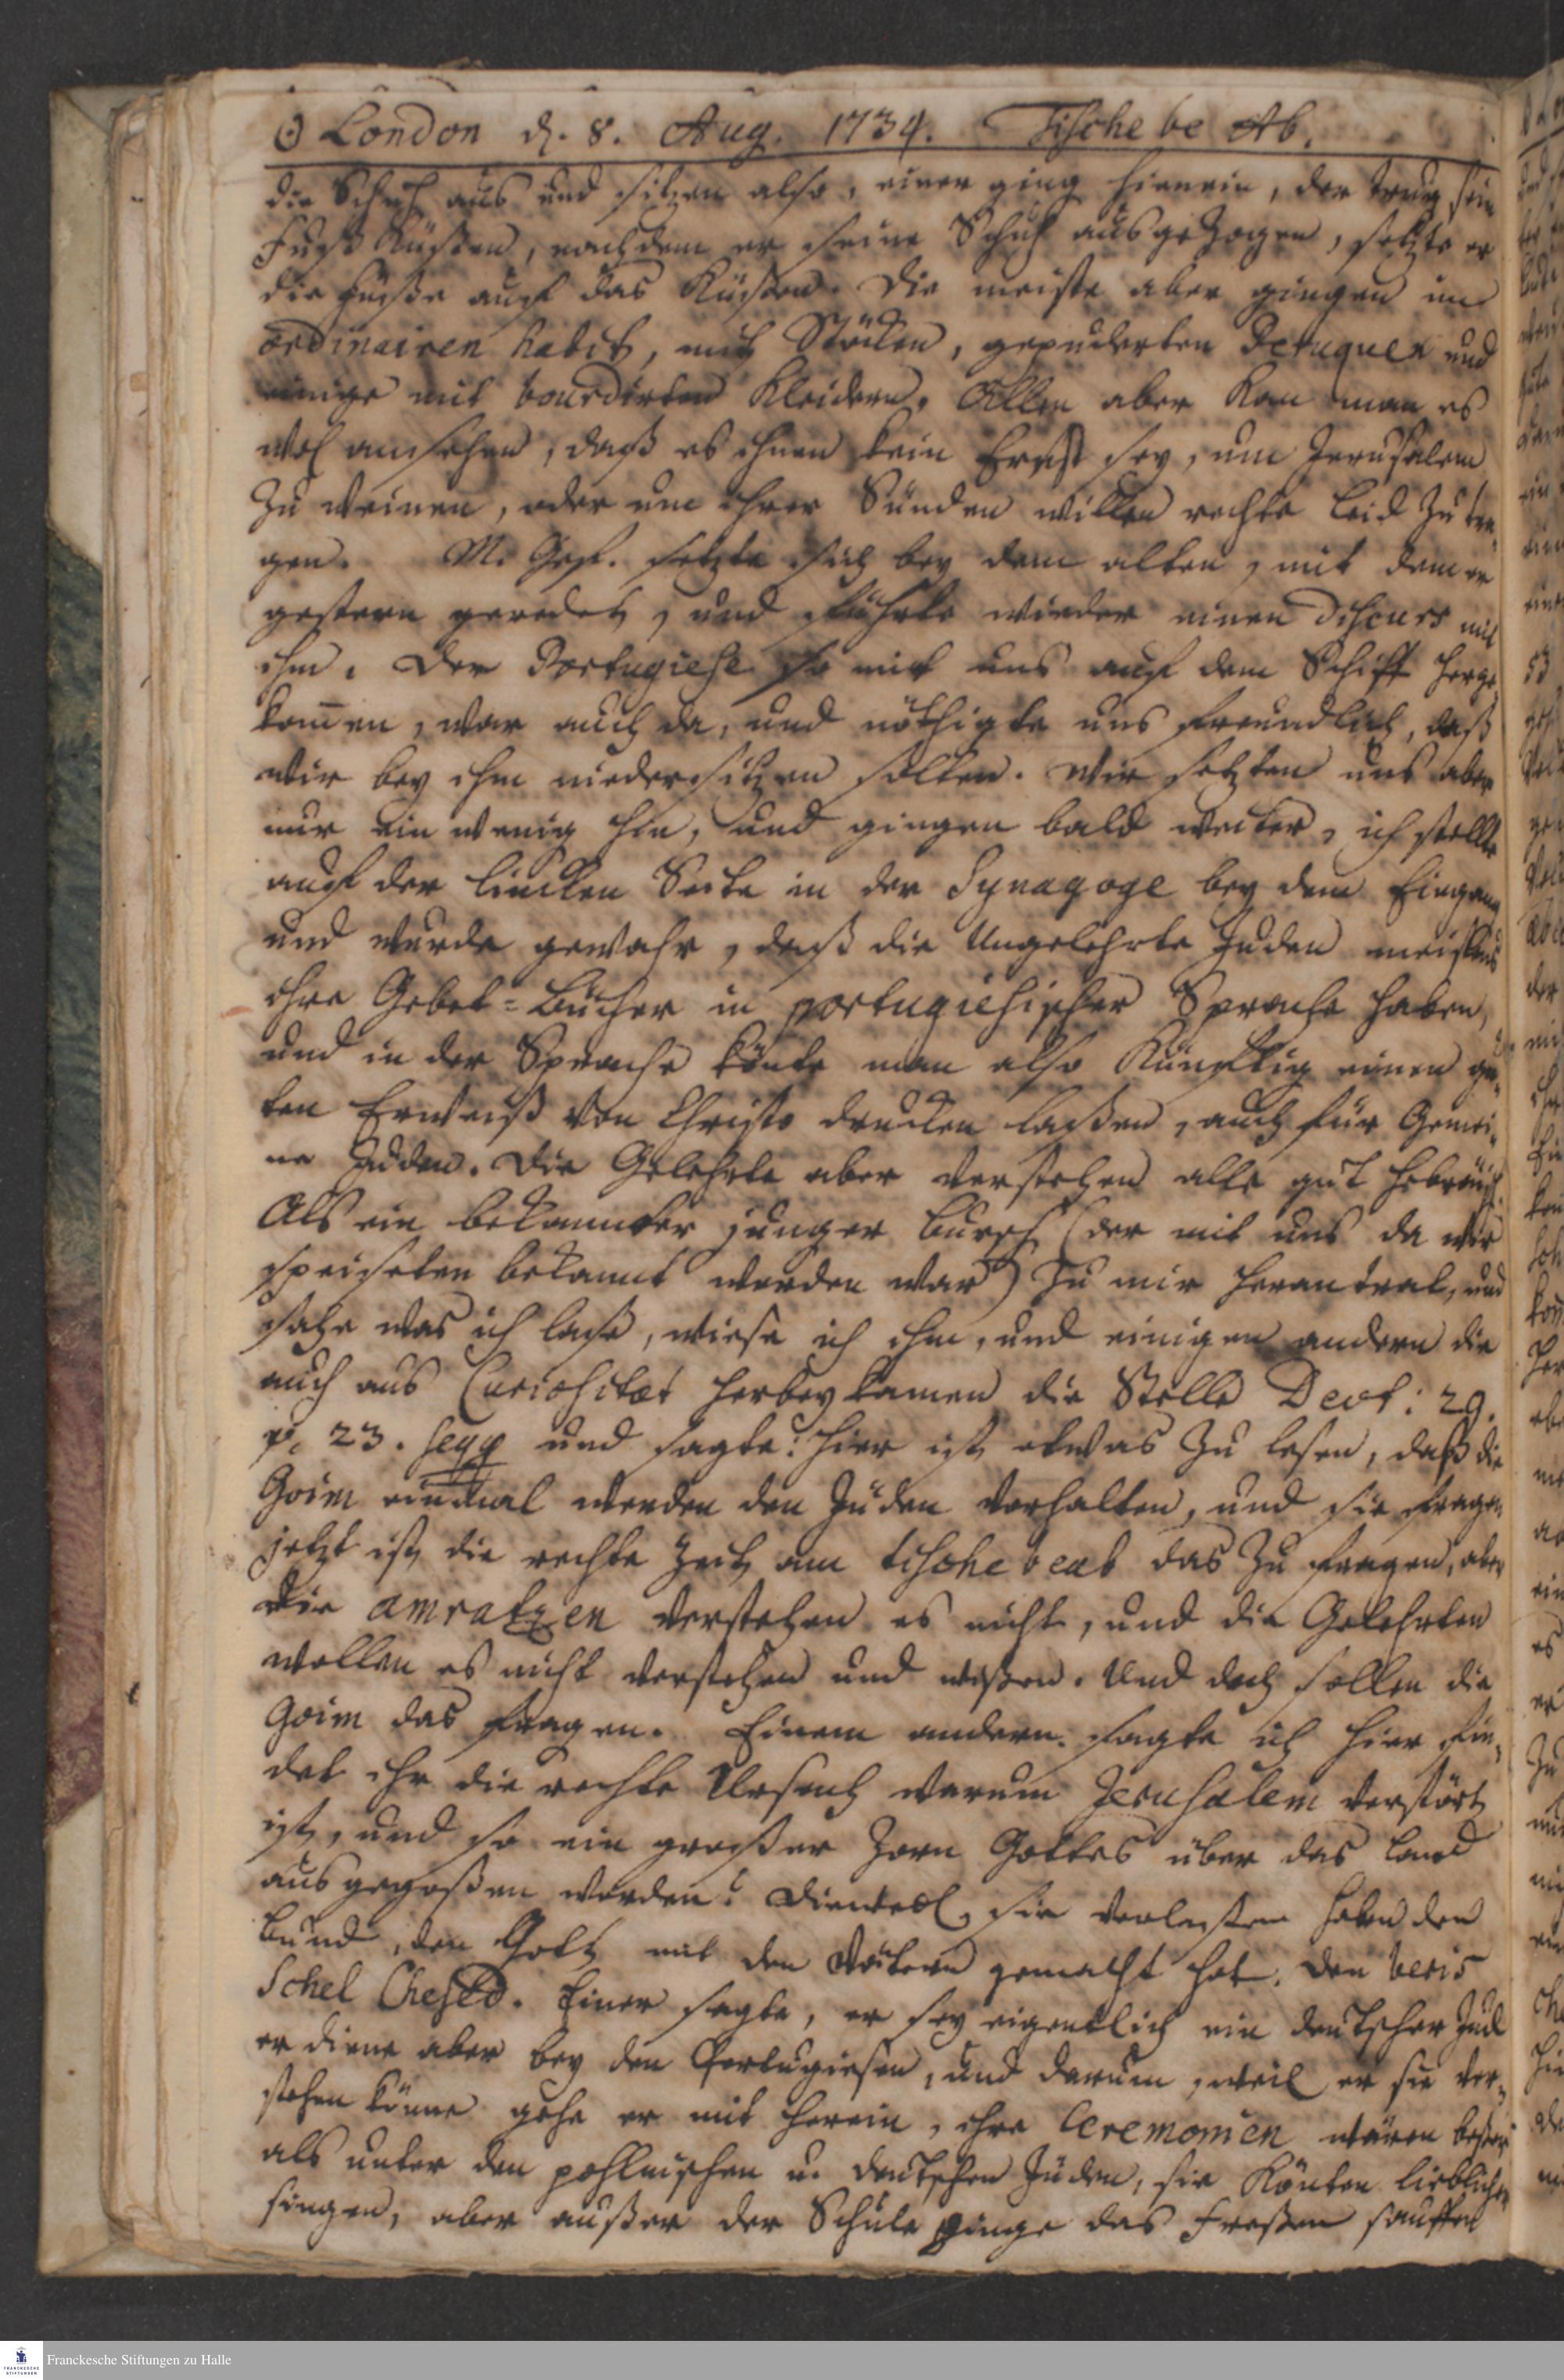 ☉ London d. 8. Aug. 1734. Tische be Ab.
die Schuh aus und sitzen also, einer ging hinein, der trug sein
Fuß Küßen, nachdem er seine Schuh ausgezogen, setzte er
die Füße auf das Küßen. Die meiste aber gingen im
ordinairen habit, mit Stöcken, gepuderten Peruquen und
einige mit bourdirten Kleidern. Allen aber kan man es
wol ansehen, daß es ihnen kein Ernst sey, um Jerusalem
zu weinen, oder um ihrer Sünden willen rechte Leid zu tra-
gen. M. Gef. setzte sich bey dem alten, mit dem er
gestern geredet, und führte wieder einen Discurs mit
ihm. Der Portugiese so mit uns auf dem Schiff herge
kom̄en, war auch da, und nöthigte uns freundlich, daß
wir bey ihm niedersitzen solten. Wir setzten uns aber
nur ein wenig hin, und gingen bald weiter, ich stellte
auf der lincken Seite in der Synagoge bey dem Eingang
und wurde gewahr, daß die Ungelehrte Juden meistens
ihre Gebet-Bücher in portugiesischer Sprache haben,
und in der Sprache könte man also künftig einen gu-
ten Erweiß von Christo drucken laßen, auch für Gemei-
ne Juden. Die Gelehrte aber verstehen alle gut hebräisch.
Als ein bekannter junger Bursch (der mit uns da wir
speiseten bekannt worden war) zu mir herantrat, und
sahe was ich lase, wiese ich ihm, und einigen andern die
auch aus Curiositæt herbey kamen die Stelle Deut: 29.
v. 23. seqq und sagte: hier ist etwas zu lesen, daß die
Goim einmal werden den Juden vorhalten, und sie fragen
jetzt ist die rechte Zeit am tische beab das zu fragen, aber
die amratzen verstehen es nicht, und die Gelehrten
wollen es nicht verstehen und wißen. Und doch sollen die
Goim das fragen. Einem andern sagte ich hier fin-
det ihr die rechte Ursach warum Jerusalem verstört
ist, und so ein großer Zorn Gottes über das Land
ausgegoßen worden? Dieweil sie verlaßen haben den
Bund, den Gott mit den Vätern gemacht hat. den beris
Schel Chesed. Einer sagte, er sey eigentlich ein deutscher Jud
er diene aber bey den Portugiesen, und darum, weil er sie ver-
stehen könne gehe er mit herein, ihre Ceremonien wären beßer
als unter den pohlnischen u. deutschen Juden, sie könten lieblicher
singen, aber außer der Schule ginge das Freßen sauffen
Franckesche Stiftungen zu Halle